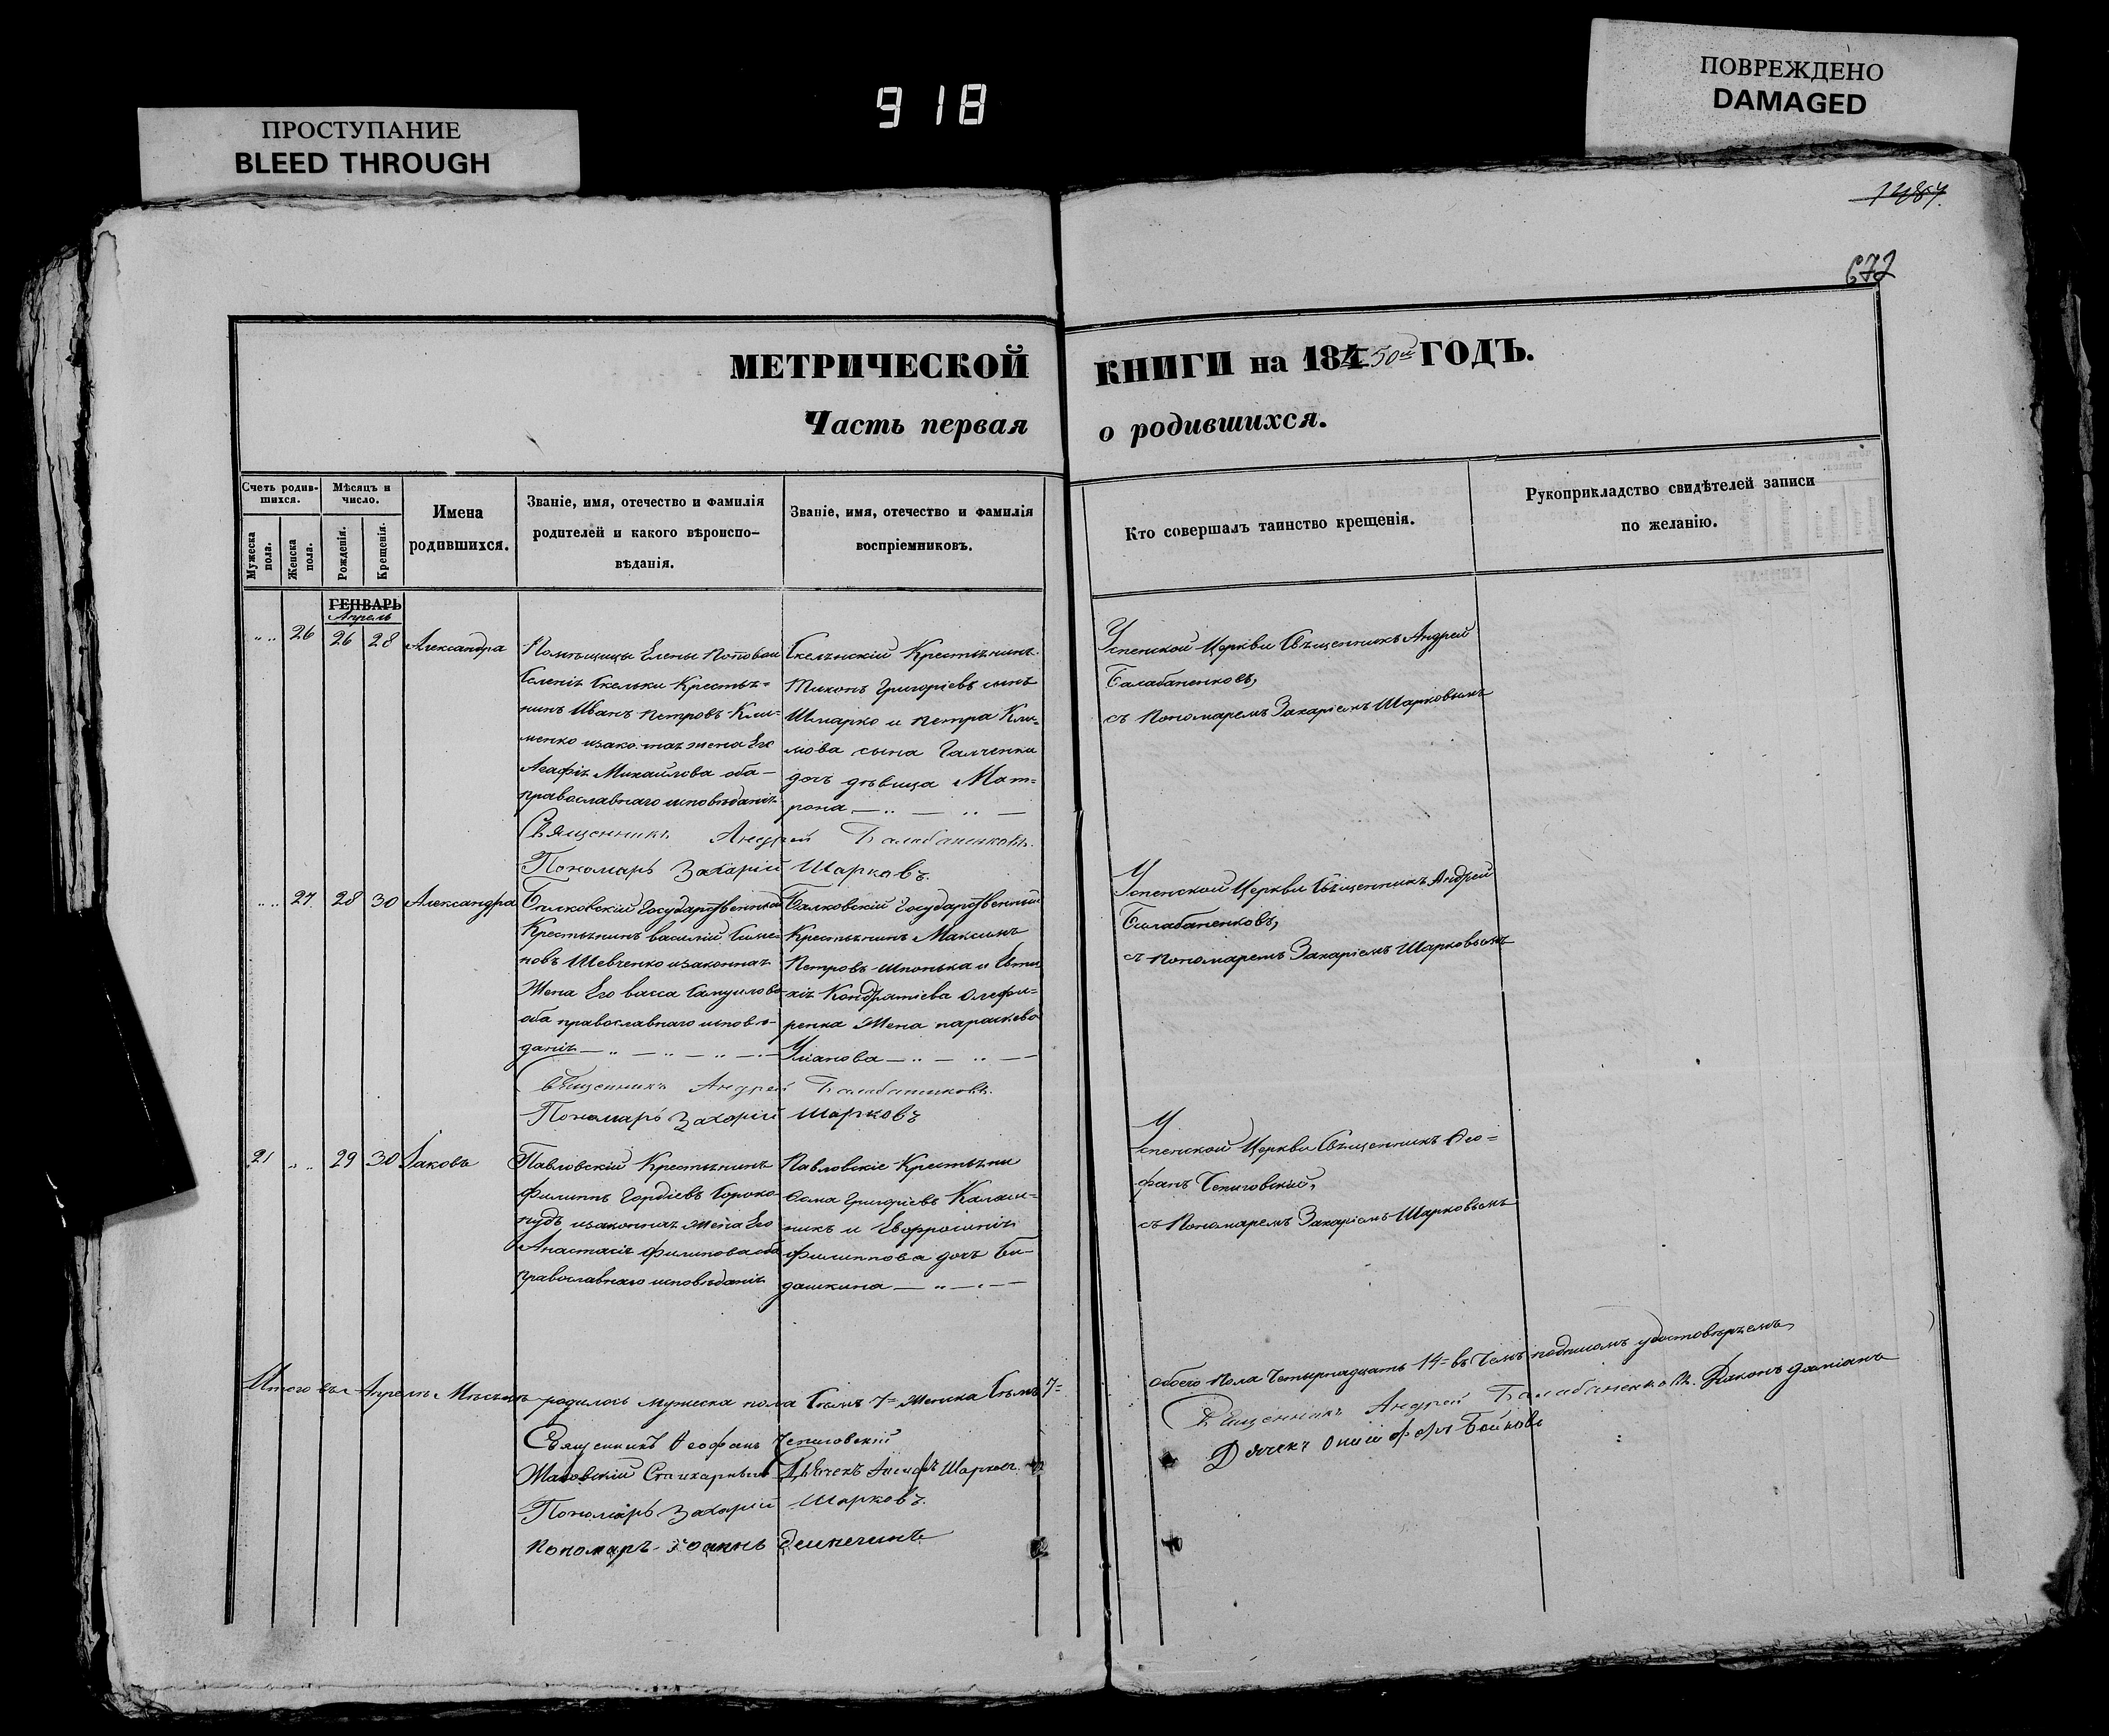 ПРОСТУПАНИЕ
BLEED THROUGH
918
ПОВРЕЖДЕНО
DAMAGED
1487.
672
МЕТРИЧЕСКОЙ КНИГИ на 184 50й ГОДЪ.
Часть первая о родившихся.
Счетъ родив-
шихся.
Мужеска
пола.
Женска
пола.
Мѣсяцъ и
число.
Рожденія.
Крещенія.
Имена
родившихся.
Званіе, имя, отечество и фамилія
родителей и какого вѣроиспо-
вѣданія.
Званіе, имя, отечество и фамилія
воспріемниковъ.
Кто совершалъ таинство крещенія.
Рукоприкладство свидѣтелей записи
по желанію.
ГЕНВАРЬ
Апрель
26 26 28 Александра
Помѣщицы Елены Поповой
Селенія Скельки Крестья=
нинъ Иванъ Петровъ Кли=
менко и закон. жена Его
Агафія Михайлова оба
православнаго исповѣданія
Скельнскій Крестьянинъ
Тихонъ Григоріевъ сынъ
Шмарко и Петра Кли=
мова сына Галченка
дочь дѣвица Мат=
рона
Священникъ Андрей Балабаненковъ.
Пономарь Захарій Шарковъ.
Успенской Церкви Священникъ Андрей
Балабаненковъ,
съ Пономаремъ Захаріемъ Шарковымъ
27. 28 30 Александра
Государственный
Крестьянинъ Василій Симо=
новъ Шевченко и законная
Жена Его Васса Самуилова
оба православнаго исповѣ-
данія
Государственный
Крестьянинъ Максимъ
Петровъ Шпонька и
Кондратіева Олефи=
ренка Жена Параскева
Уліанова
Священникъ Андрей Балабаненковъ.
Пономарь Захарій Шарковъ
Успенской Церкви Священникъ Андрей
Балабаненковъ,
съ Пономаремъ Захаріемъ Шарковымъ
21 29 30 Іаковъ
Павловскій Крестьянинъ
Филиппъ Гордіевъ Сороко=
пудъ и законная Жена Его
Анастасія Филипова оба
православнаго исповѣданія
Павловскіе Крестьяни
Ѳома Григоріевъ Калаш=
никъ и Евфросинія
Филиппова дочь
Успенской Церкви Священникъ Ѳео=
фанъ
съ Пономаремъ Захаріемъ Шарковымъ
Итого въ Апрелѣ Мѣсяцѣ родилось мужеска пола Семь 7= Женска Семь 7=
обоего Пола Четырнадцать 14= въ Чемъ подписомъ удостовѣряемъ
Священникъ Ѳеофанъ
Священникъ Андрей Балабаненковъ. Діаконъ Даміанъ
Дьячекъ Шарковъ.
Дячекъ Онисифоръ Бойковъ
Пономарь Захарій Шарковъ.
Пономарь Іоаннъ